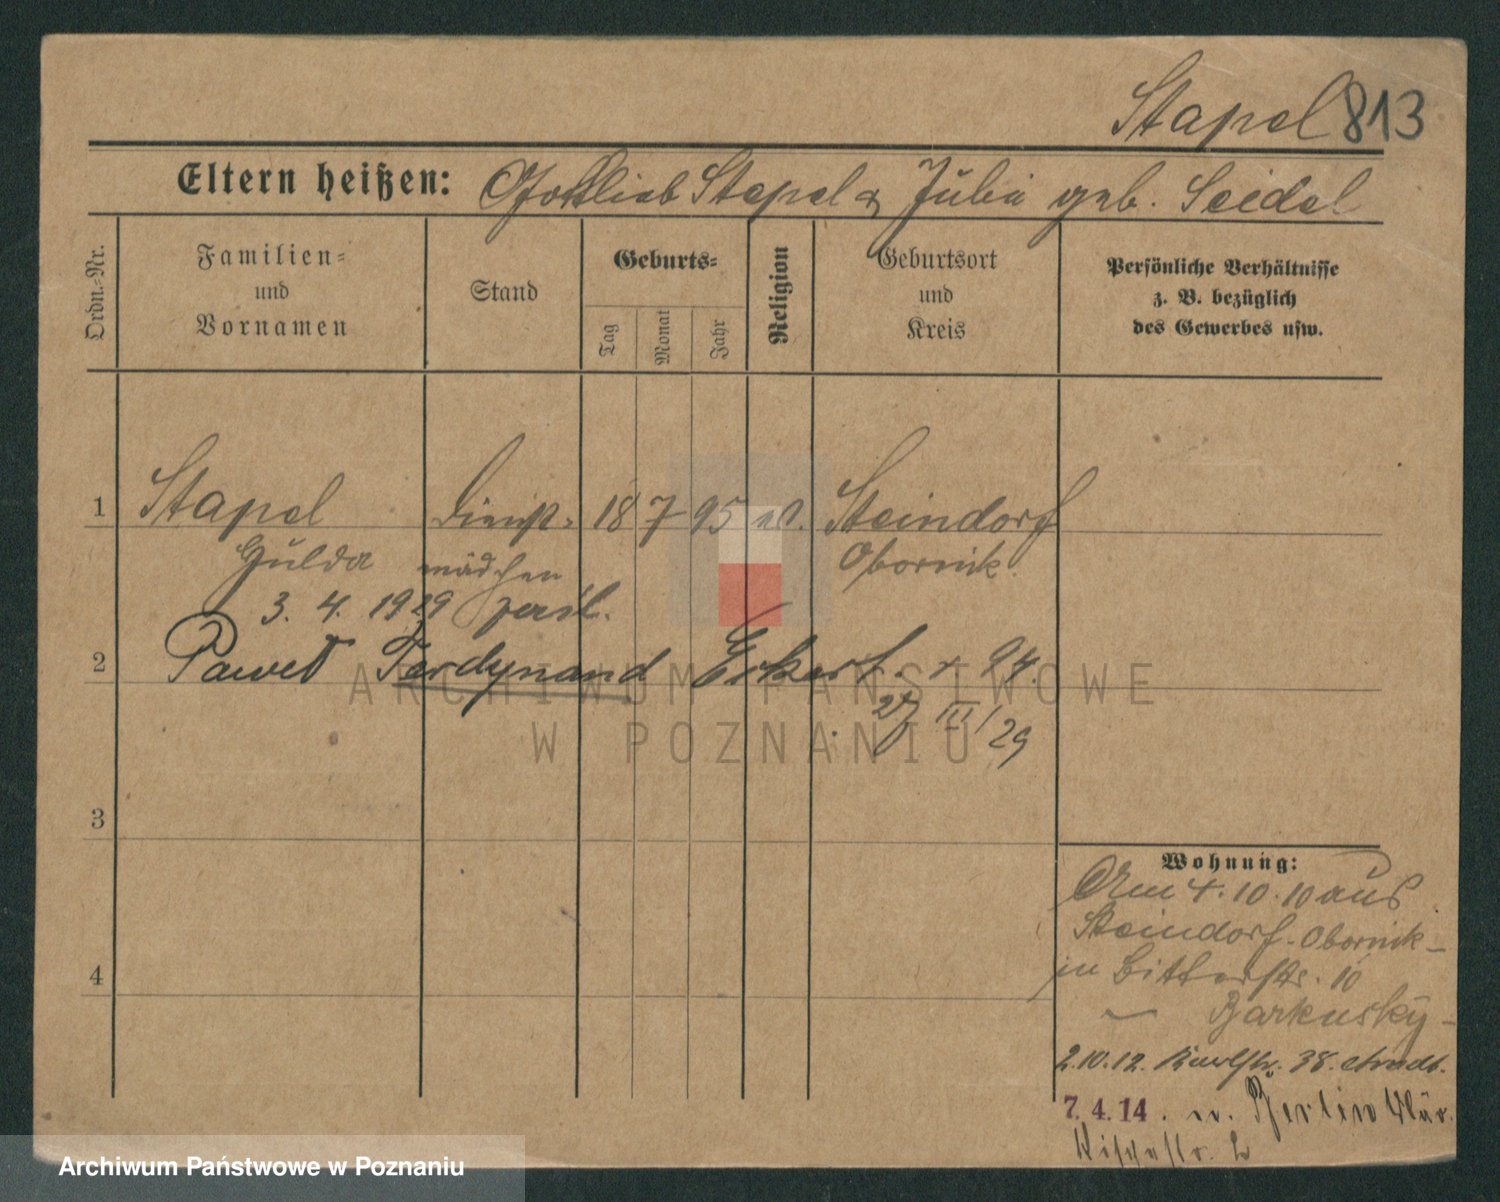 Stapel 813
Eltern heißen: Gottlieb Stapel & Julie geb. Seidel
Ordn.-Nr.
Familien-
und
Vornamen
Stand
Geburts-
Tag
Monat
Jahr
Religion
Geburtsort
und
Kreis
Persönliche Verhältnisse
z. B. bezüglich
des Gewerbes usw.
1 Stapel Dienst- 18 7 95 ev. Steindorf
Hulda mädchen Obornik
3. 4. 1929
2 Paweł Ferdynand Eckert 94.
27 III/29
3
4
Wohnung:
Am 4.10.10 aus
Steindorf-Obornik-
in Bitterstr. 10
Barkusky
2.10.12. Karlstr. 38. Arndt.
7.4.14. n. Berlin
ARCHIWUM PAŃSTWOWE
W POZNANIU
Archiwum Państwowe w Poznaniu